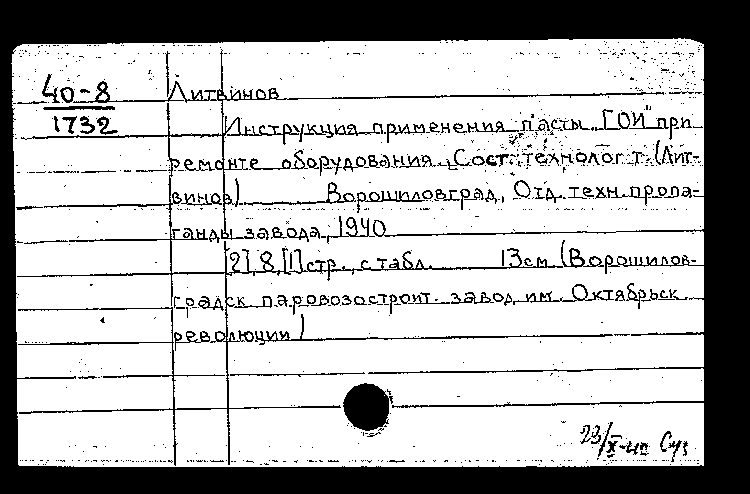 40-8
1732
Литвинов
Инструкция применения пасты „ГОИ" при
ремонте оборудования. Сост. технолог т. (Лит-
винов) Ворошиловград, Отд. техн. пропа-
ганды завода, 1940
[2], 8, [1] стр., с табл. 13см (Ворошилов-
градск паровозостроит. завод им. Октябрьск
революции)
23/X-40